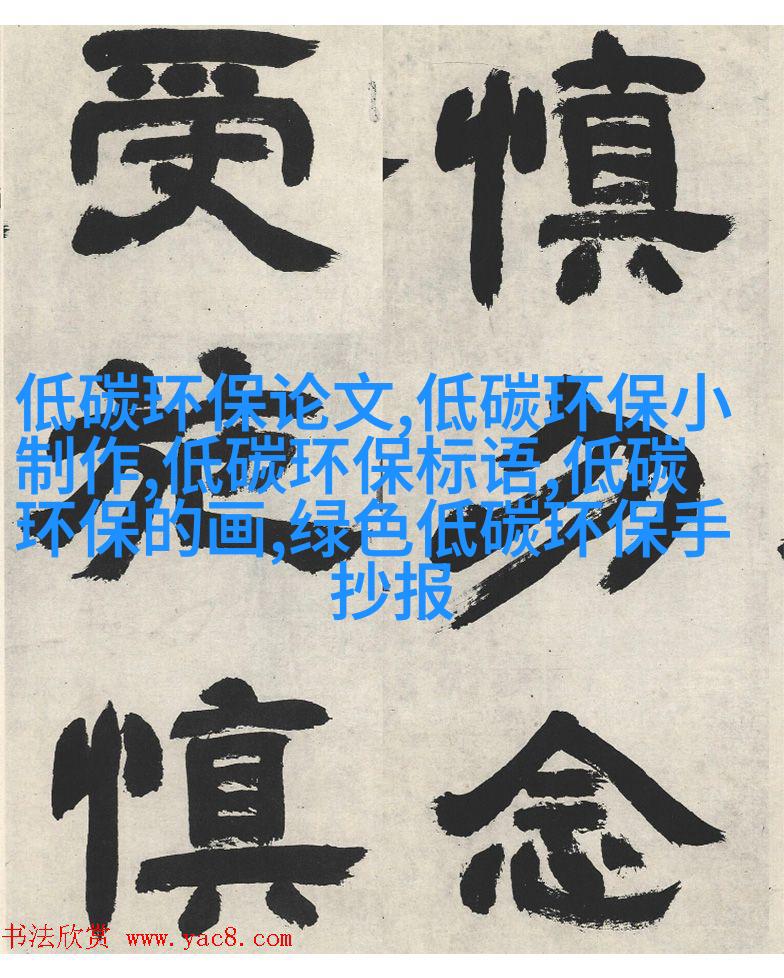 慎勿念
受施慎
低碳环保论文,低碳环保小
制作,低碳环保标语,低碳
环保的画,绿色低碳环保手
抄报
书法欣赏 www.yac8.com